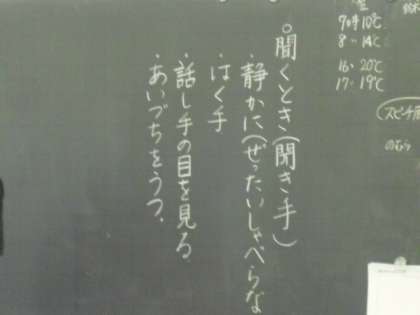 ○聞くとき(聞き手)
・静かに(ぜったいしゃべらな
・はく手
・話し手の目を見る
・あいづちをうつ.
9時10℃
8〃14℃
16〃20℃
17〃19℃
スピーチ
のむら